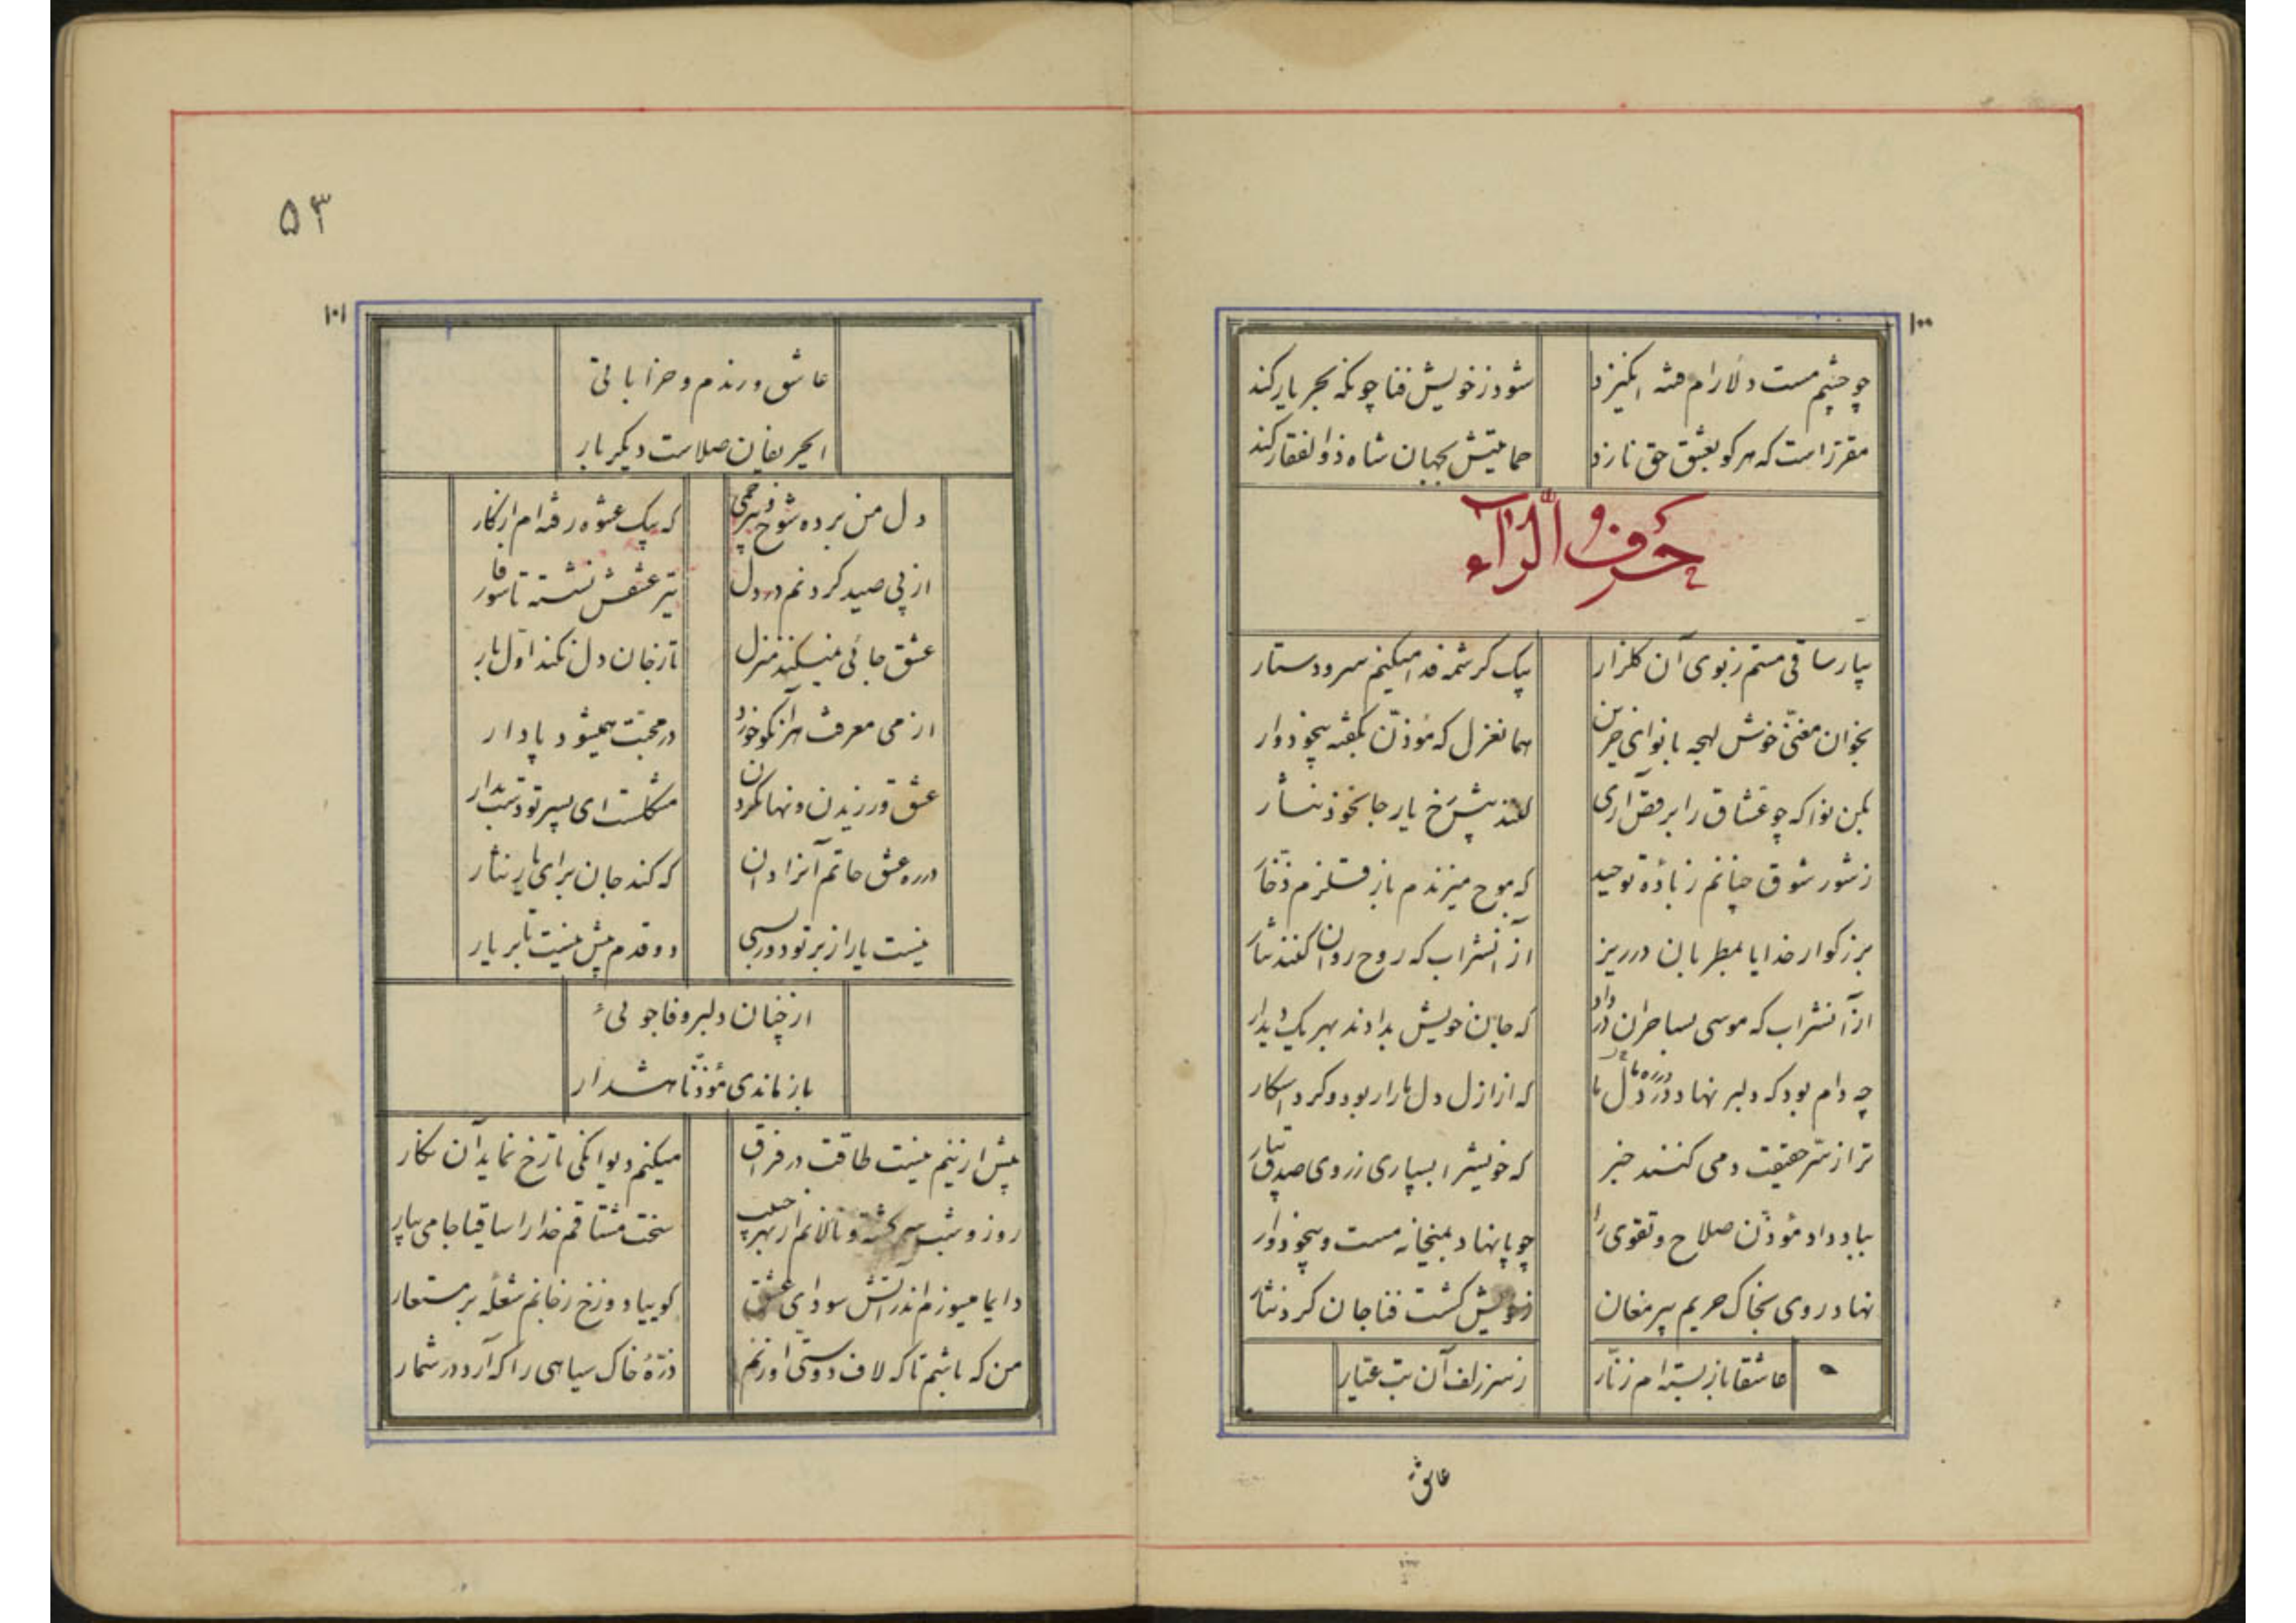 ۱۰۰
چو چشم مست دلارام فتنه انگیزد
شود ز خویش فنا چونکه بجر یار کند
مقرر است که هر کو بعشق حق نازد
حمایتش بجهان شاه ذوالفقار کند
حَرفُ الرّاء
بیار ساقی مستم ز بوی آن گلزار
بیک کرشمه فدا میکنم سر و دستار
بخوان مغنّی خوش لهجه با نوای حزین
همانغزل که مؤذّن بگفته بیخود وار
بکن نوا که چو عشاق را برقص آری
کنند پیش رخ یار جان خود نثار
ز شور شوق چنانم ز بادهٔ توحید
که موج میزندم باز قلزم ذخّار
بزرگوار خدایا بمطربان در ریز
از آنشراب که روح روان کنند نثار
از آنشراب که موسی بساحران در داد
که جان خویش بدادند بهر یک دیدار
چه دام بود که دلبر نهاد در ره ما
که از ازل دل ما را ربود و کرد اسکار
ترا ز سرّ حقیقت دمی کنند خبر
که خویشرا بسپاری ز روی صدق بیار
بباد داد مؤذّن صلاح و تقوی را
چو پا نهاد بمیخانه مست و بیخود وار
نهاد روی بخاک حریم پیر مغان
ز خویش گشت فنا جان کرد نثار
عاشقانه باز بسته‌ام زنّار
ز سر زلف آن بت عیّار
عاشق
۵۳
۱۰۱
عاشق و رندم و خراباتی
ایحریفان صلاست دیگر بار
دل من برده شوخ بیرحمی
که بیک عشوه رفته‌ام از کار
از پی صید کردنم در دل
تیر عشقش نشسته تا سوفار
عشق جائی نمیکند منزل
تا ز جان دل نکند اول بار
از می معرفت هر آنکو خورد
در محبت همیشود پادار
عشق ورزیدن و نهان کردن
مشکلست ای پسر تو دست بدار
در ره عشق حاتم آنرا دان
که کند جان برای یار نثار
نیست یار از بر تو دور بسی
دو قدم بیش نیست تا بر یار
از چنان دلبر وفا جوئی
باز ماندی مؤذّنا هشدار
بیش ازینم نیست طاقت در فراق
میکنم دیوانگی تا رخ نماید آن نگار
روز و شب سرگشته و نالانم از بهر حبیب
سخت مشتاقم خدا را ساقیا جامی بیار
دایما میسوزم اندر آتش سودای عشق
گوییا دوزخ ز جانم شعله بر مستعار
من که باشم تا که لاف دوستی او زنم
ذرّهٔ خاک سیاهی را که آرد در شمار